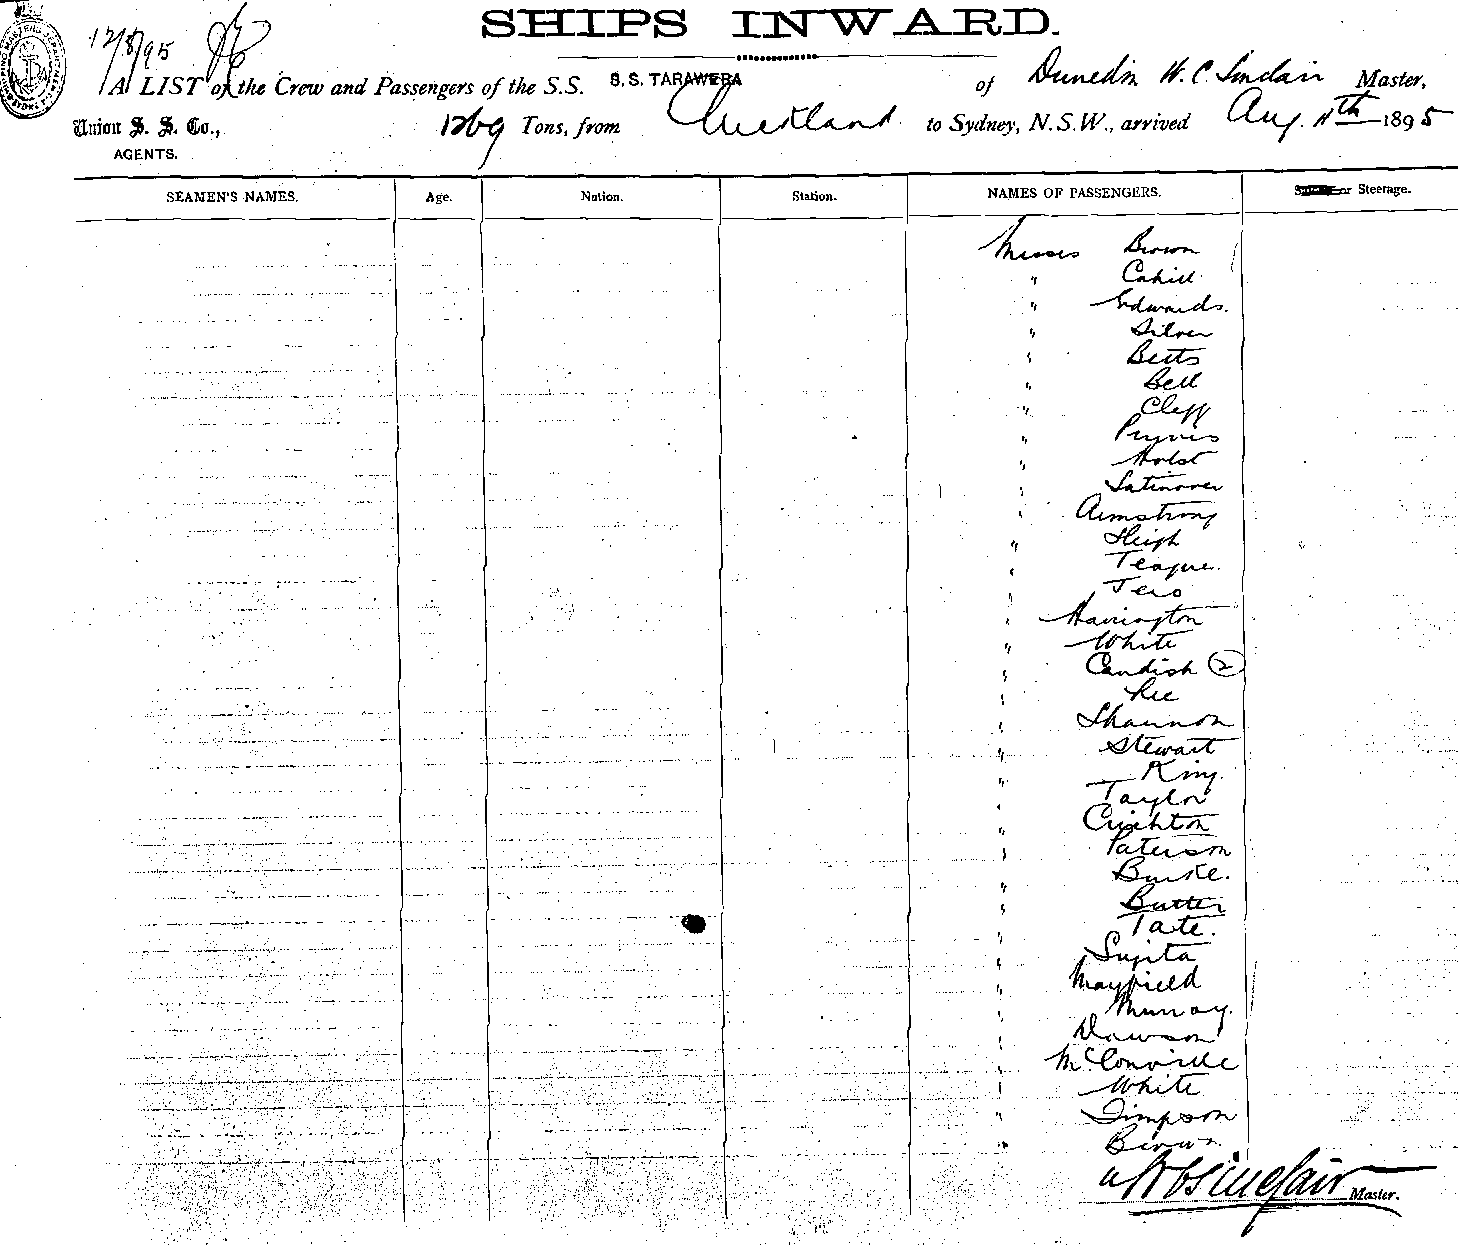 SHIPS INWARD.
12/8/95
A LIST of the Crew and Passengers of the S.S. S.S. TARAWERA of Dunedin W. C. Sinclair Master,
Union S. S. Co., 1269 Tons, from Auckland to Sydney, N.S.W., arrived Aug. 11th 1895
AGENTS.
SEAMEN'S NAMES. Age. Nation. Station. NAMES OF PASSENGERS. or Steerage.
Misses Brown
" Cahill
" Edwards.
" Silver
" Betts
" Bell
" Clegg
" Purvis
" Holst
" Satinover
" Armstrong
" Heigh
" Teague.
" 
" Harrington
" White
" Candish (2)
" Lee
" Shannon
" Stewart
" King.
" Taylor
" Crichton
" Paterson
" Burke.
" Butter
" Tate.
" Sujita
" Mayfield
" Murray.
" Dawson
" McConville
" White
" Simpson
" Brown
W C Sinclair Master.